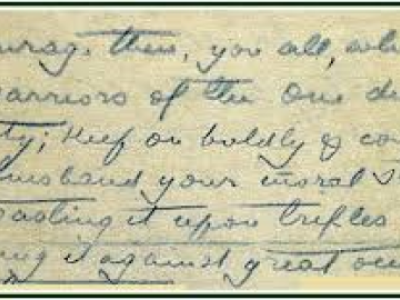 ourage then, you all, who
warriors of the One de
ty; Keep on boldly & co
husband your moral s
casting it upon trifles
ing it against great occ